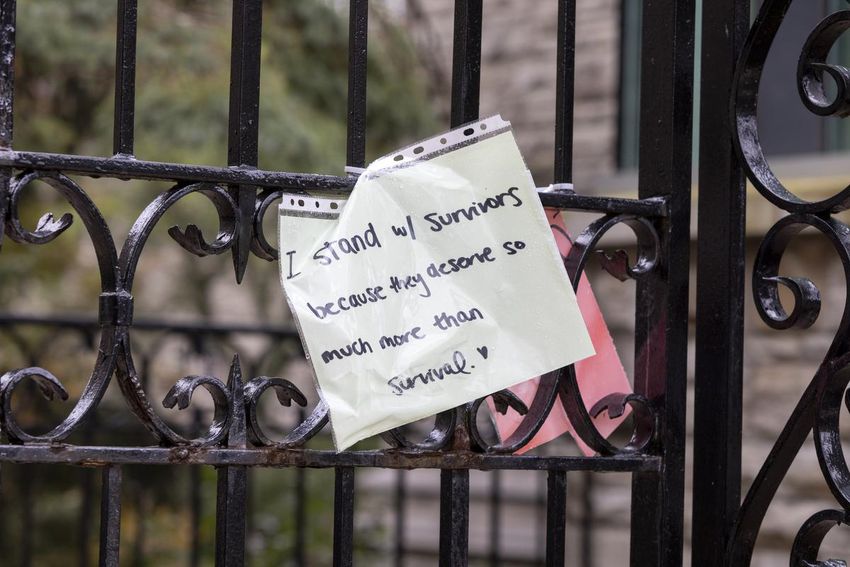 I stand w/ survivors
because they deserve so
much more than
survival. ♥